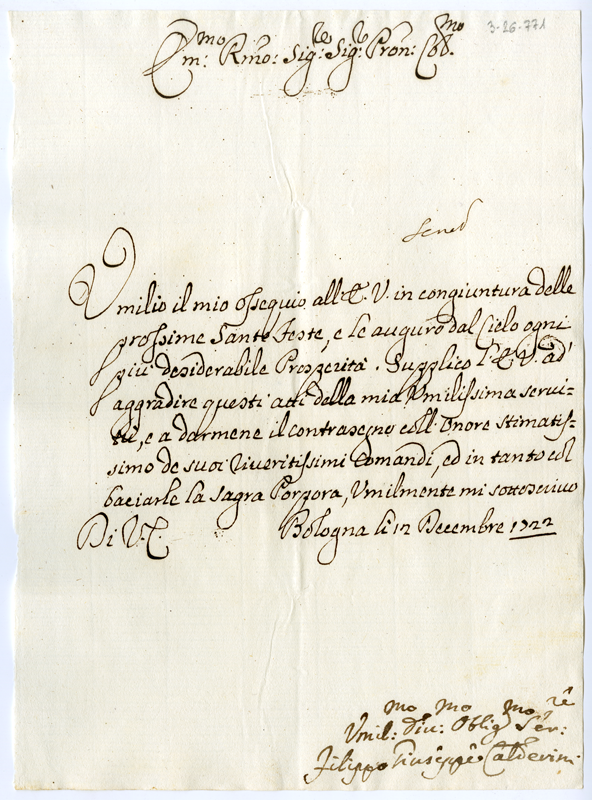 3-26-771
Em:mo Rmo: Sig:re Sig:re Pron: Col.mo
Umilio il mio ossequio all'E. V. in congiuntura delle
prossime Sante Feste, e le auguro dal Cielo ogni
più desiderabile Prosperità. Supplico l'E. V. ad
aggradire questi atti della mia Umilissima servi=
tù, e a darmene il contrasegno coll'Onore stimatis=
simo de suoi riveritissimi Comandi, ed in tanto col
baciarle la Sagra Porpora, Umilmente mi sottoscrivo
Di V. E. Bologna li 12 Decembre 1722
Umil:mo Div:mo Oblig:mo Ser:re
Filippo Giuseppe Calderini